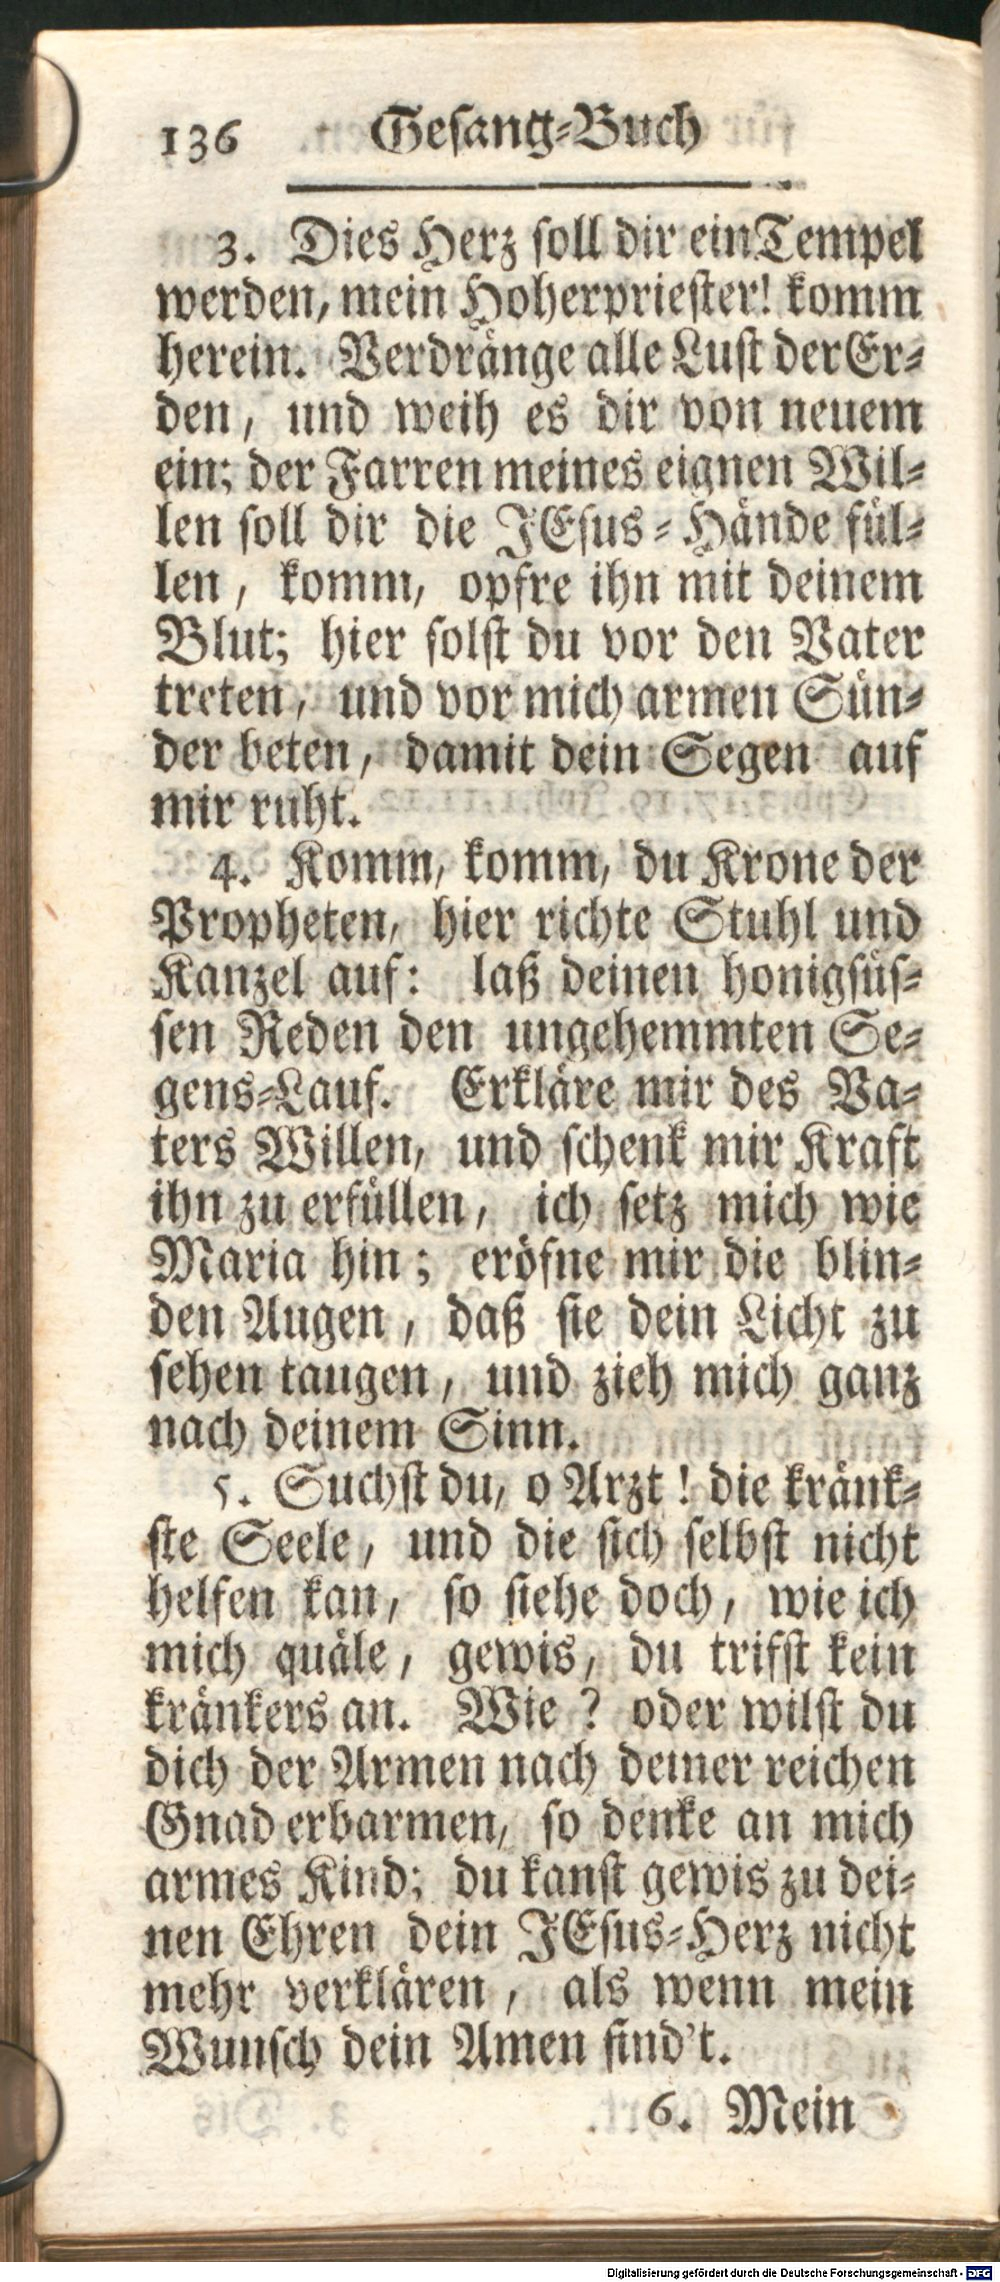 136 Gesang-Buch
3. Dies Herz soll dir ein Tempel
werden, mein Hoherpriester! komm
herein. Verdränge alle Lust der Er-
den, und weih es dir von neuem
ein; der Farren meines eignen Wil-
len soll dir die JEsus-Hände fül-
len, komm, opfre ihn mit deinem
Blut; hier solst du vor den Vater
treten, und vor mich armen Sün-
der beten, damit dein Segen auf
mir ruht.
4. Komm, komm, du Krone der
Propheten, hier richte Stuhl und
Kanzel auf: laß deinen honigsüs-
sen Reden den ungehemmten Se-
gens-Lauf. Erkläre mir des Va-
ters Willen, und schenk mir Kraft
ihn zu erfüllen, ich setz mich wie
Maria hin; eröfne mir die blin-
den Augen, daß sie dein Licht zu
sehen taugen, und zieh mich ganz
nach deinem Sinn.
5. Suchst du, o Arzt! die kränk-
ste Seele, und die sich selbst nicht
helfen kan, so siehe doch, wie ich
mich quäle, gewis, du trifst kein
kränkers an. Wie? oder wilst du
dich der Armen nach deiner reichen
Gnad erbarmen, so denke an mich
armes Kind; du kanst gewis zu dei-
nen Ehren dein JEsus-Herz nicht
mehr verklären, als wenn mein
Wunsch dein Amen find't.
6. Mein
Digitalisierung gefördert durch die Deutsche Forschungsgemeinschaft - DFG